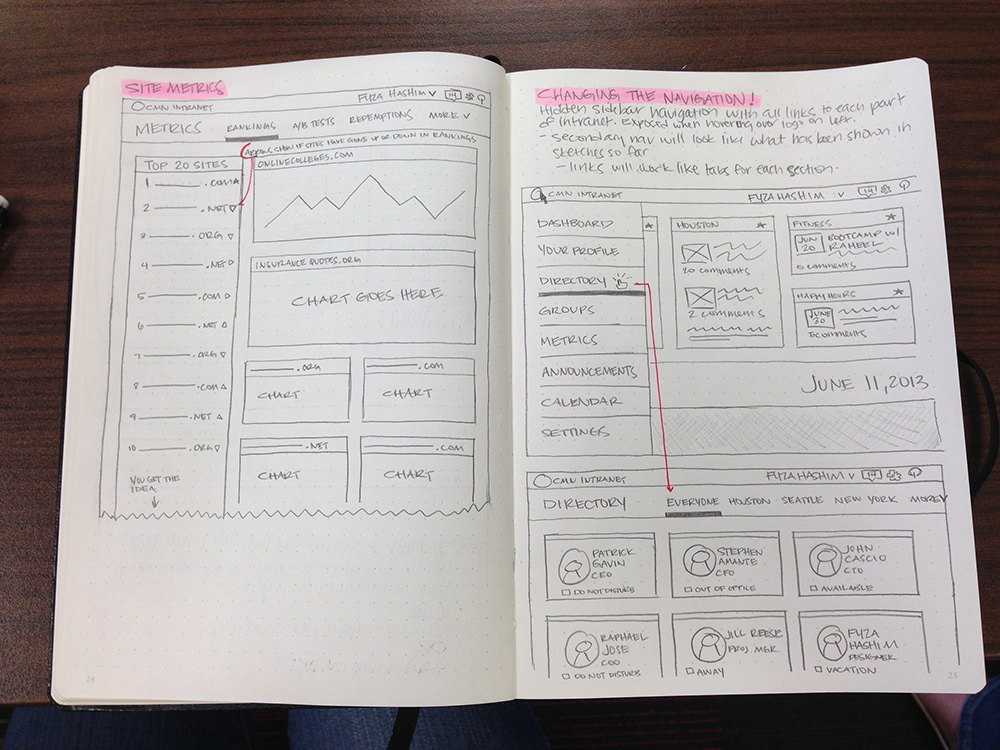 SITE METRICS
CMN INTRANET
FYZA HASHIM
14
METRICS
RANKINGS
A/B TESTS
REDEMPTIONS
MORE
ARROWS SHOW IF SITES HAVE GONE UP OR DOWN IN RANKINGS
TOP 20 SITES
1 .COM
2 .NET
3 .ORG
4 .NET
5 .COM
6 .NET
7 .ORG
8 .COM
9 .NET
10 .ORG
YOU GET THE
IDEA
ONLINECOLLEGES.COM
INSURANCE QUOTES.ORG
CHART GOES HERE
.ORG
CHART
.COM
CHART
.NET
CHART
.COM
CHART
24
CHANGING THE NAVIGATION!
Hidden sidebar navigation with all links to each part
of intranet. Exposed when hovering over logo on left.
- Secondary nav will look like what has been shown in
sketches so far
- links will work like tabs for each section.
CMN INTRANET
FYZA HASHIM
14
DASHBOARD
YOUR PROFILE
DIRECTORY
GROUPS
METRICS
ANNOUNCEMENTS
CALENDAR
SETTINGS
HOUSTON
20 comments
2 comments
FITNESS
JUN
20
BOOTCAMP W/
RAHEEL
comments
HAPPY HOURS
JUNE
30
comments
JUNE 11, 2013
CMN INTRANET
FYZA HASHIM
14
DIRECTORY
EVERYONE
HOUSTON
SEATTLE
NEW YORK
MORE
PATRICK
GAVIN
CEO
DO NOT DISTURB
STEPHEN
AMANTE
CFO
OUT OF OFFICE
JOHN
CASCIO
CTO
AVAILABLE
RAPHAEL
JOSE
COO
DO NOT DISTURB
JILL REESE
PROJ. MGR.
AWAY
FYZA
HASHIM
DESIGNER
VACATION
25